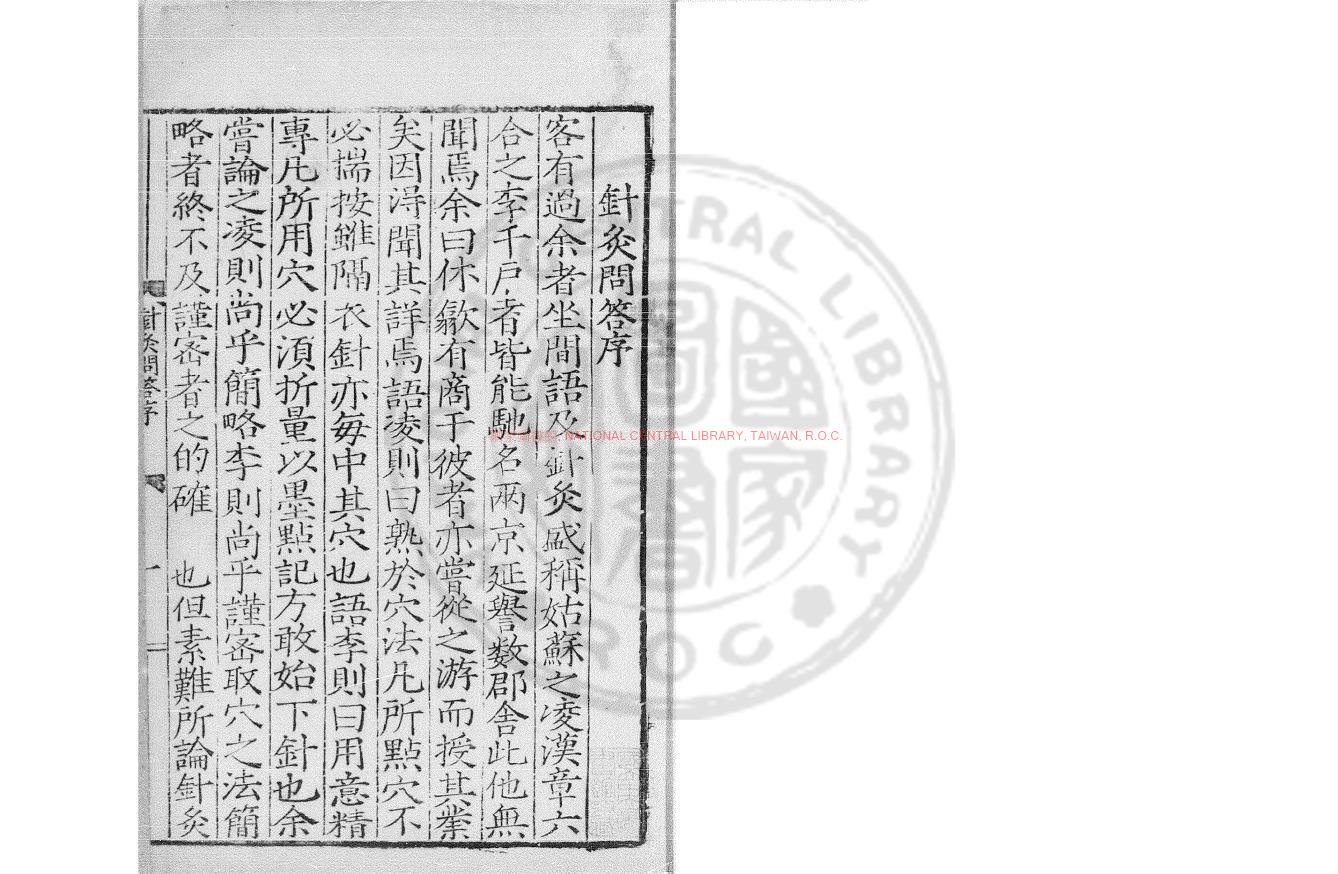 針灸問答序
客有過余者坐間語及針灸盛稱姑蘇之凌漢章六
合之李千戶者皆能馳名兩京延譽数郡舍此他無
聞焉余曰休歙有商于彼者亦嘗從之游而授其業
矣因得聞其詳焉語凌則曰熟於穴法凡所點穴不
必揣按雖隔衣針亦每中其穴也語李則曰用意精
專凡所用穴必須折量以墨點記方敢始下針也余
嘗論之凌則尚乎簡略李則尚乎謹宻取穴之法簡
略者終不及謹宻者之的確 也但素難所論針灸
針灸問答序
一
NATIONAL CENTRAL LIBRARY, TAIWAN, R.O.C.
CENTRAL LIBRARY
R.O.C